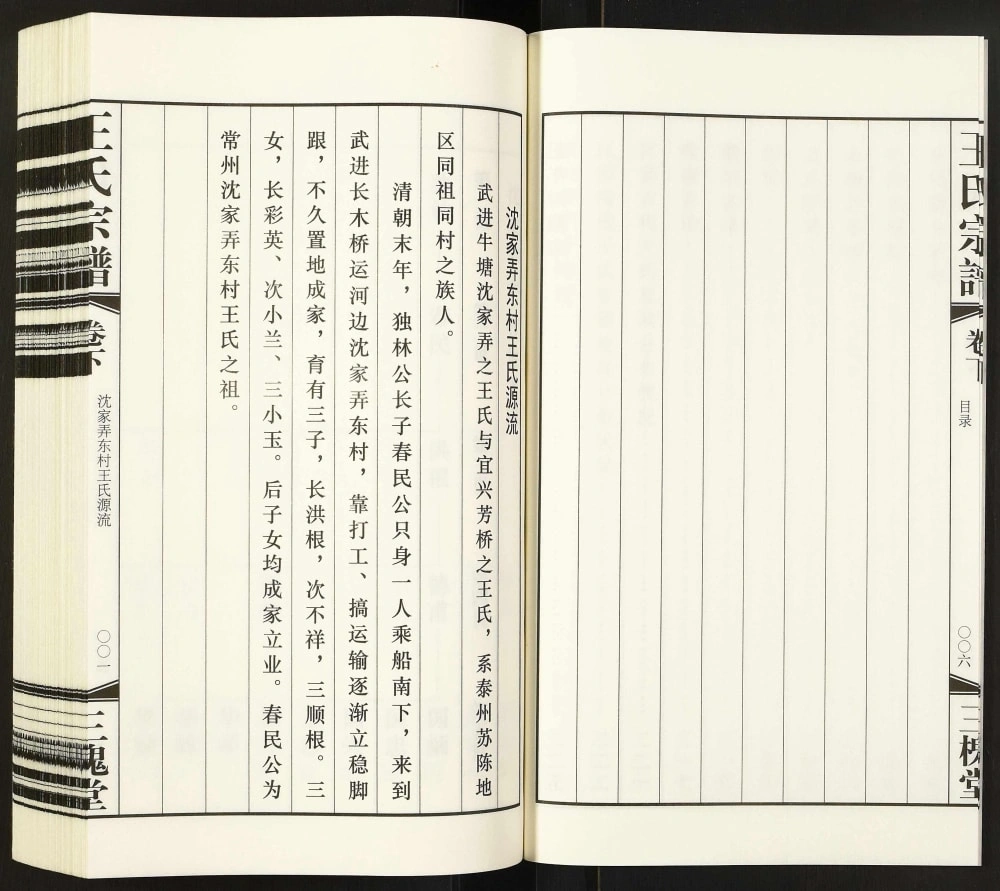 王氏宗谱
卷下
目录
〇〇六
三槐堂
沈家弄东村王氏源流
武进牛塘沈家弄之王氏与宜兴芳桥之王氏，系泰州苏陈地
区同祖同村之族人。
清朝末年，独林公长子春民公只身一人乘船南下，来到
武进长木桥运河边沈家弄东村，靠打工、搞运输逐渐立稳脚
跟，不久置地成家，育有三子，长洪根，次不祥，三顺根。三
女，长彩英、次小兰、三小玉。后子女均成家立业。春民公为
常州沈家弄东村王氏之祖。
王氏宗谱
卷下
沈家弄东村王氏源流
〇〇一
三槐堂